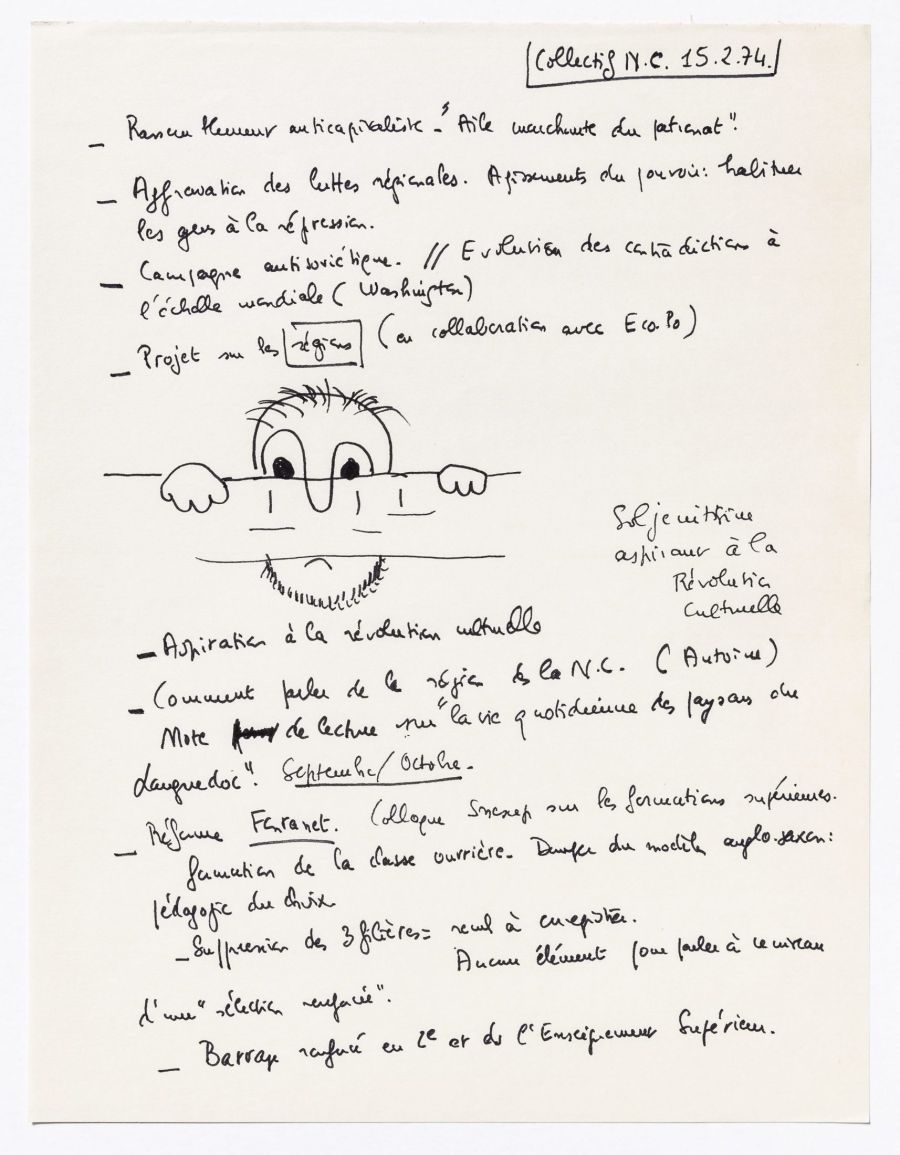 Collectif N.C. 15.2.74.
_ Rassemblement anticapitaliste - "Aile marchante du patronat".
_ Aggravation des luttes régionales. Agissements du pouvoir: habituer
les gens à la répression.
_ Campagne antisoviétique. // Evolution des contradictions à
l'échelle mondiale (Washington)
_ Projet sur les régions (en collaboration avec Eco. Po)
Soljenitsine
aspirant à la
Révolution
Culturelle
_ Aspiration à la révolution culturelle
_ Comment parler de la région ds la N.C. (Antoine)
Note de lecture sur "la vie quotidienne des paysans du
Languedoc". Septembre/Octobre.
_ Réforme Fontanet. Colloque Snesup sur les formations supérieures.
formation de la classe ouvrière. Danger du modèle anglo-saxon:
pédagogie du choix
_ Suppression des 3 filières = recul à enregistrer.
Aucun élément pour parler à ce niveau
d'une "sélection renforcée".
_ Barrage renforcé en 2e et ds l'Enseignement Supérieur.